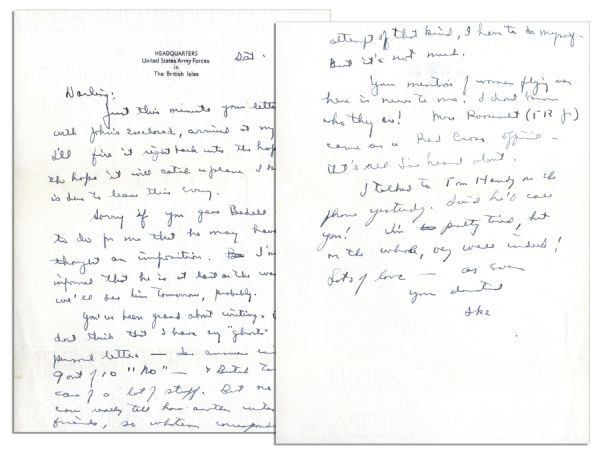 HEADQUARTERS
United States Army Forces
in
The British Isles
Sat.
Darling:
Just this minute your letter
with John's enclosed, arrived at my
I'll fire it right back into the hop
the hope it will catch a plane I
is due to leave this evng.
Sorry if you gave Bedell
to do for me that he may have
thought an imposition. I'm
informed that he is at last on the way
we'll see him tomorrow, probably.
You've been grand about writing.
don't think that I have any "ghosts"
personal letters —
9 out of 10 "No" — & Butch
care of a lot of stuff. But no
can really tell how another writes
friends, so whatever correspond
attempt of that kind, I have to do myself.
But it's not much.
Your mention of women flying over
here is news to me! I don't know
who they are! Mrs Roosevelt (TR Jr)
came as a Red Cross official —
that's all I've heard about.
I talked to Tom Handy on the
phone yesterday. Said he'd call
you! I'm pretty tired, but
on the whole, very well indeed!
Lots of love — as ever
your devoted
Ike